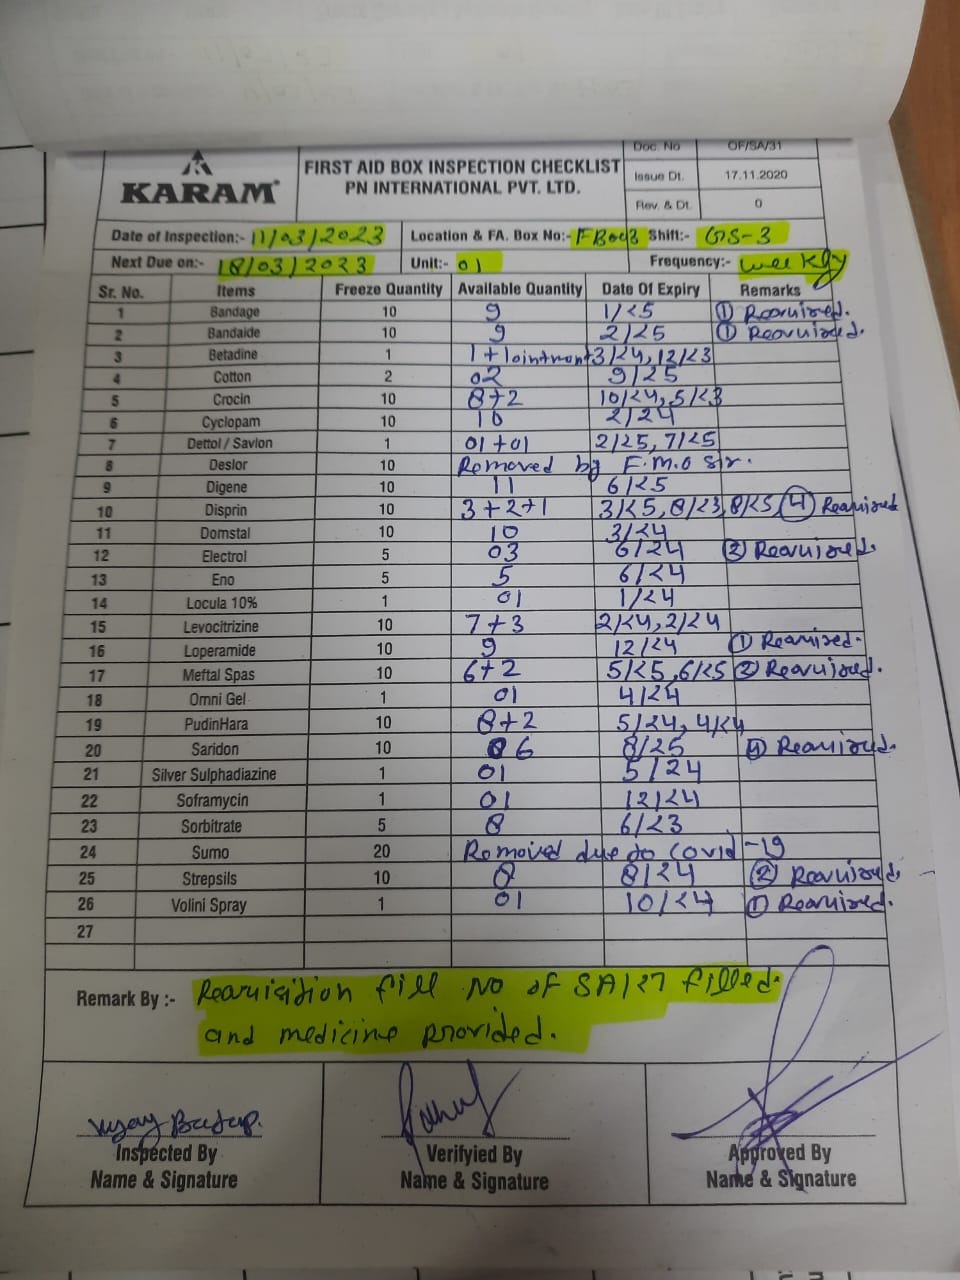 KARAM
FIRST AID BOX INSPECTION CHECKLIST
PN INTERNATIONAL PVT. LTD.
Doc. No OF/SA/31
Issue Dt. 17.11.2020
Rev. & Dt. 0
Date of Inspection:- 11/03/2023 Location & FA. Box No:- FB003 Shift:- GS-3
Next Due on:- 18/03/2023 Unit:- 01 Frequency:- weekly
Sr. No. Items Freeze Quantity Available Quantity Date Of Expiry Remarks
1 Bandage 10 9 1/25 ① Reavuired.
2 Bandaide 10 9 2/25 ① Reavuired.
3 Betadine 1 1+1ointment 3/24, 12/23
4 Cotton 2 02 9/25
5 Crocin 10 8+2 10/24, 5/23
6 Cyclopam 10 10 2/24
7 Dettol / Savlon 1 01+01 2/25, 7/25
8 Deslor 10 Removed by F.M.O Sir.
9 Digene 10 11 6/25
10 Disprin 10 3+2+1 3/25, 8/23, 8/25 ④ Reavuired
11 Domstal 10 10 3/24
12 Electrol 5 03 6/24 ② Reavuired.
13 Eno 5 5 6/24
14 Locula 10% 1 01 1/24
15 Levocitrizine 10 7+3 2/24, 2/24
16 Loperamide 10 9 12/24 ① Reavuired.
17 Meftal Spas 10 6+2 5/25, 6/25 ② Reavuired.
18 Omni Gel 1 01 4/24
19 PudinHara 10 8+2 5/24, 4/24
20 Saridon 10 06 8/25 ④ Reavuired.
21 Silver Sulphadiazine 1 01 5/24
22 Soframycin 1 01 12/24
23 Sorbitrate 5 8 6/23
24 Sumo 20 Removed due to Covid-19
25 Strepsils 10 8 8/24 ② Reavuired.
26 Volini Spray 1 01 10/24 ① Reavuired.
27
Remark By :- Reavuisition fill No of SA/27 filled.
and medicine provided.
Vijay
Inspected By Verifyied By Approved By
Name & Signature Name & Signature Name & Signature